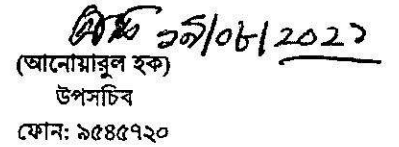 ১৯/০৮/২০২১
(আনোয়ারুল হক)
উপসচিব
ফোন: ৯৫৪৫৭২০